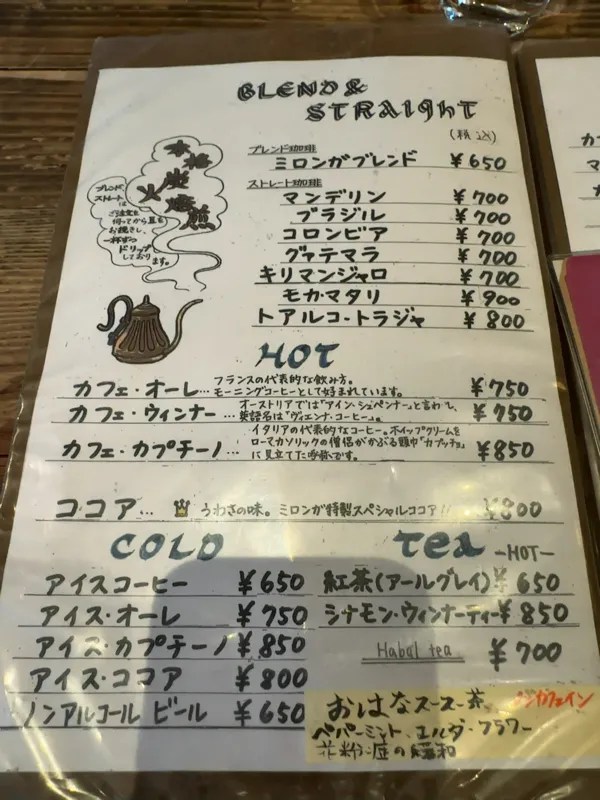 BLEND &
STRAIGHT
(税込)
ブレンド珈琲
ミロンガブレンド ¥650
ストレート珈琲
マンデリン ¥700
ブラジル ¥700
コロンビア ¥700
グァテマラ ¥700
キリマンジャロ ¥700
モカ・マタリ ¥900
トアルコ・トラジャ ¥800
本格
炭
火
焙煎
ブレンド
ストレートは
ご注文を
伺ってから豆を
お挽きし、
一杯ずつ
ドリップ
しており
ます。
HOT
カフェ・オーレ…フランスの代表的な飲み方。
モーニングコーヒーとして好まれています。 ¥750
カフェ・ウィンナー…オーストリアでは「アイン・シュペンナー」と言わて、
英語名は「ヴィエンナ・コーヒー」。 ¥750
カフェ・カプチーノ…イタリアの代表的なコーヒー。ホイップクリームを
ローマカソリックの僧侶がかぶる頭巾「カプッチョ」
に見立てた呼称です。 ¥850
ココア… うわさの味。ミロンガ特製スペシャルココア!! ¥800
COLD
アイスコーヒー ¥650
アイス・オーレ ¥750
アイス・カプチーノ ¥850
アイス・ココア ¥800
ノンアルコール ビール ¥650
tea -HOT-
紅茶(アールグレイ) ¥650
シナモン・ウィンナーティー ¥850
Habal tea ¥700
おはなスースー茶 ノンカフェイン
ペパーミント、エルダーフラワー
花粉症の緩和
カ
マ